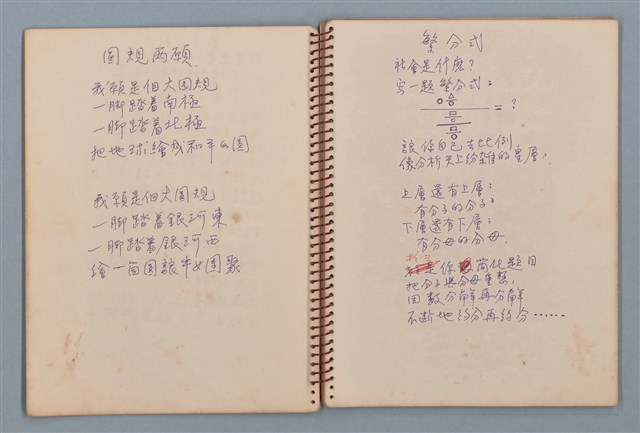 圓規兩願
我願是個大圓規
一腳踏着南極
一腳踏着北極
把地球繪成和平的圓
我願是個大圓規
一腳踏着銀河東
一腳踏着銀河西
繪一個圓讓牛女團聚
繁分式
社會是什麼?
写一題繁分式:
= ?
讓你自己去比例
像分析天上紛雜的星層,
上層還有上層;
有分子的分子;
下層還有下層;
有分母的分母.
你 简化題目
把分子與分母重整,
因數分解再分解
不断地約分再約分……